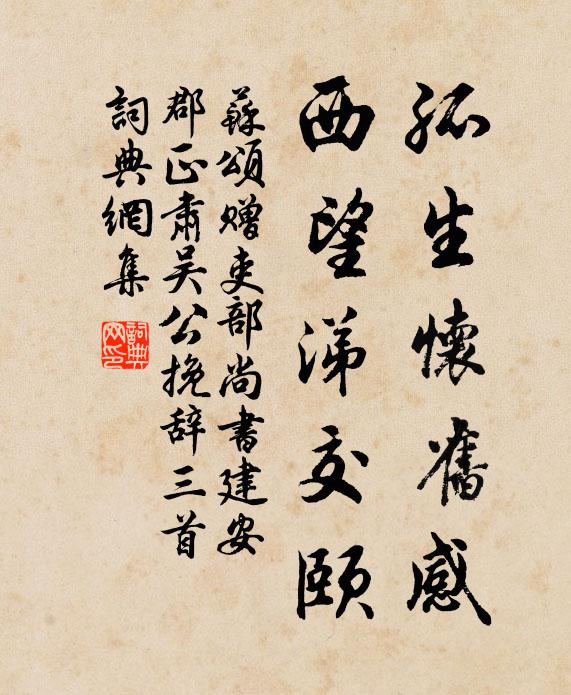 孤生懷舊感
西望涕交頤
蘇頌贈吏部尚書建安
郡正肅吴公挽辞三首
詞典網集
詞典網印